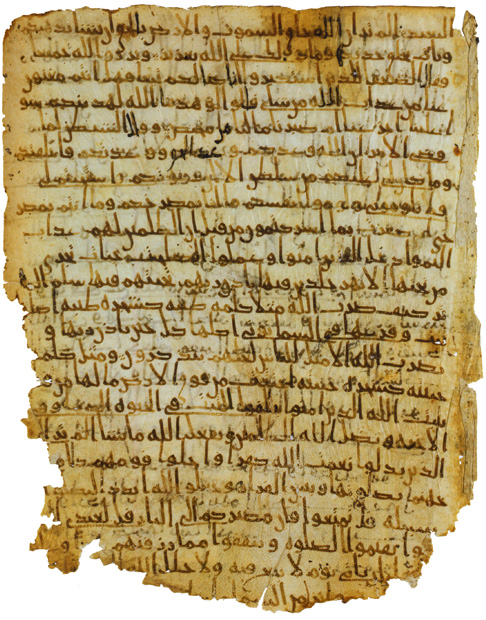 البعيد الم تر ان الله خلق السموت والارض بالحق ان يشا يذهبكم
ويات بخلق جديد وما ذلك على الله بعزيز وبرزوا لله جميعا
فقال الضعفوا للذين استكبروا انا كنا لكم تبعا فهل انتم مغنون
عنا من عذاب الله من شي قالوا لو هدينا الله لهدينكم سوا
علينا اجزعنا ام صبرنا ما لنا من محيص وقال الشيطن لما
قضي الامر ان الله وعدكم وعد الحق ووعدتكم فاخلفتكم
وما كان لي عليكم من سلطن الا ان دعوتكم فاستجبتم لي
فلا تلوموني ولوموا انفسكم ما انا بمصرخكم وما انتم بمصر
خي اني كفرت بما اشركتمون من قبل ان الظلمين لهم عذاب
اليم وادخل الذين امنوا وعملوا الصلحت جنت تجري
من تحتها الانهر خلدين فيها باذن ربهم تحيتهم فيها سلم الم
تر كيف ضرب الله مثلا كلمه طيبه كشجره طيبه اصلها
ثبت وفرعها في السما تؤتي اكلها كل حين باذن ربها و
يضرب الله الامثل للناس لعلهم يتذكرون ومثل كلمه
خبيثه كشجره خبيثه اجتثت من فوق الارض ما لها من
يثبت الله الذين امنوا بالقول الثبت في الحيوه الدنيا وفي
الاخره ويضل الله الظلمين ويفعل الله ما يشا الم تر الى
الذين بدلوا نعمت الله كفرا واحلوا قومهم دار
جهنم يصلونها وبيس القرار وجعلوا لله اندادا ليضلوا
سبيله قل تمتعوا فان مصيركم الى النار قل لعبادي
امنوا يقيموا الصلوه وينفقوا مما رزقنهم
قبل ان ياتي يوم لا بيع فيه ولا خلل الله
وانزل من السما